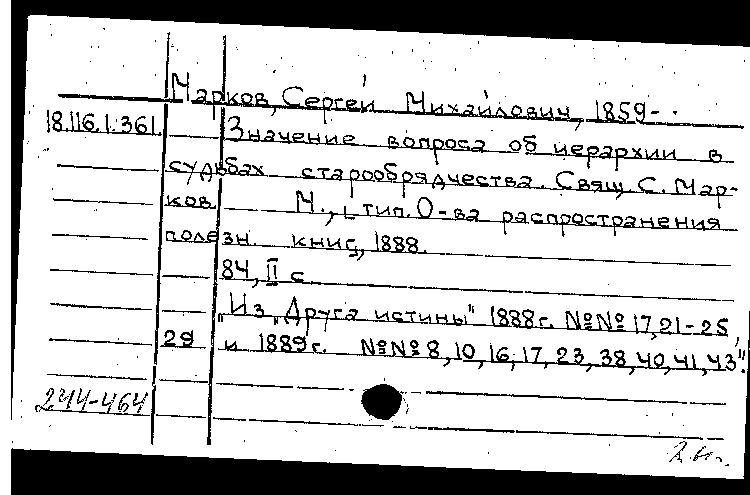 Марков, Сергей Михайлович, 1859- .
18.116.1.361. Значение вопроса об иерархии в
судьбах старообрядчества. Свящ. С. Мар-
ков. М., тип. О-ва распространения
полезн. книг, 1888.
84, II с.
"Из "Друга истины" 1888г. №№ 17, 21-25,
29 и 1889г. №№ 8, 10, 16, 17, 23, 38, 40, 41, 43".
244-464